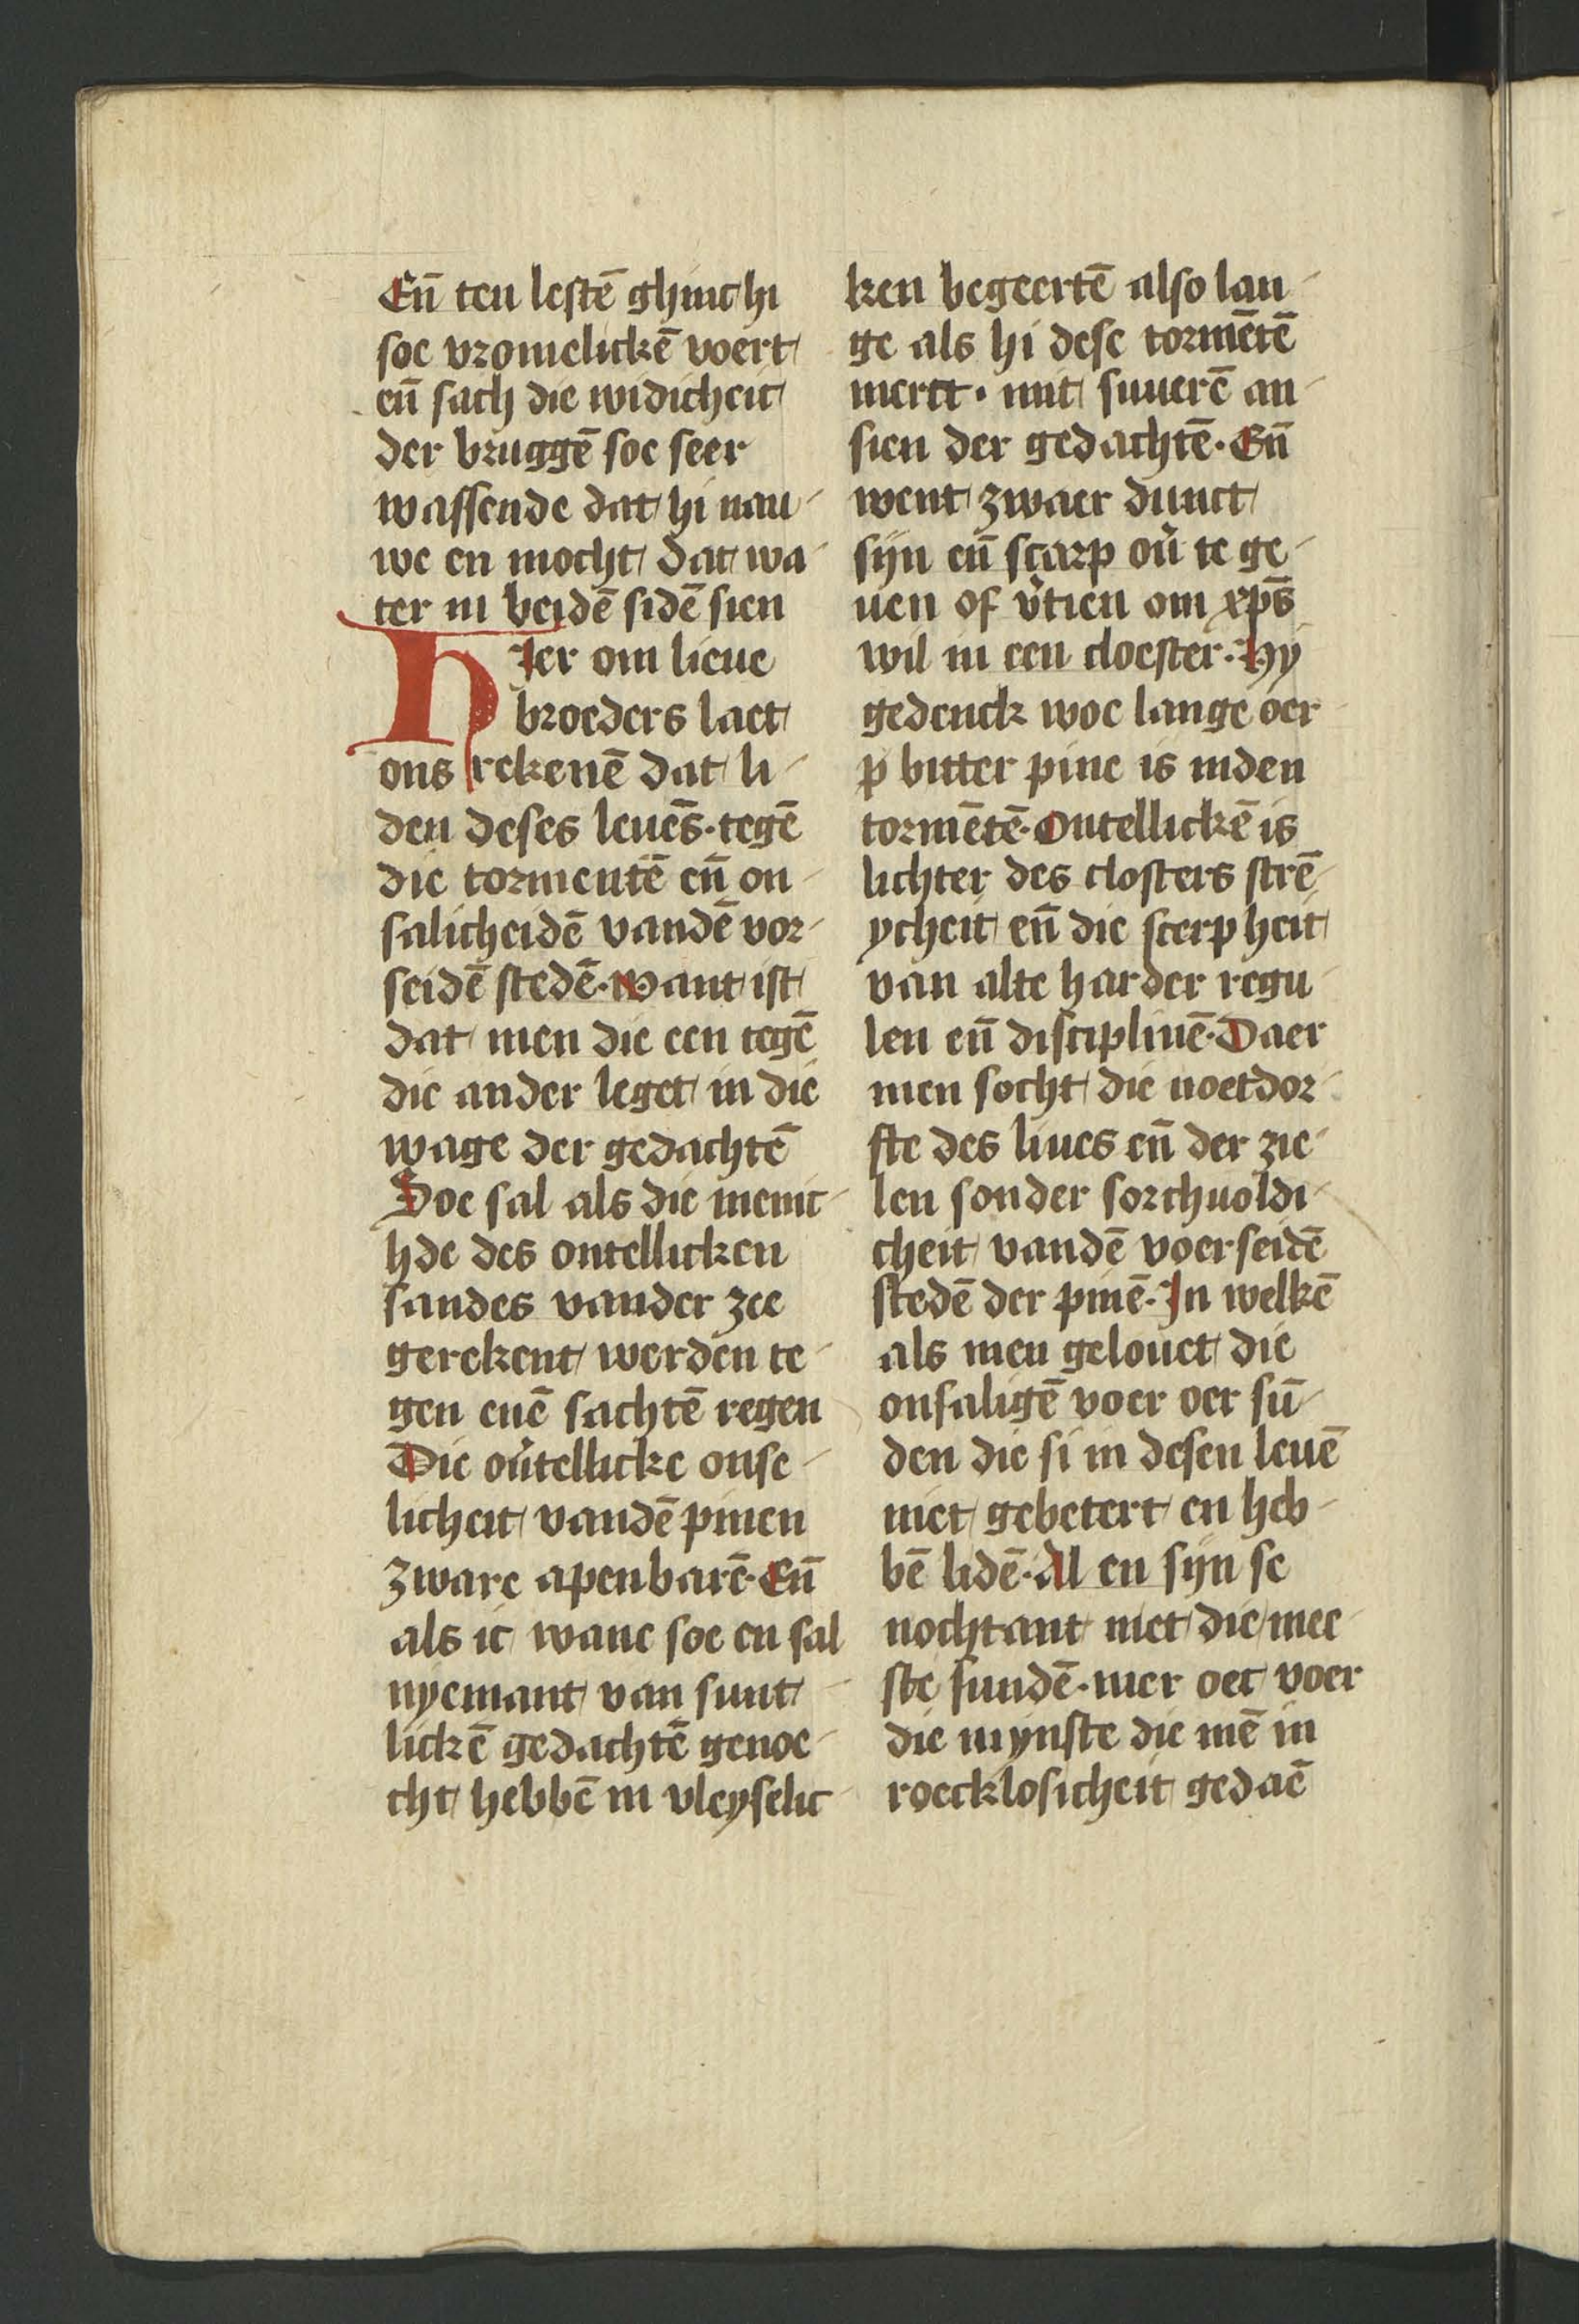 En̄ ten lestē ghinc hi
soe vromelickē voert
en̄ sach die widicheit
der bruggē soe seer
wassende dat hi nau-
we en mocht dat wa-
ter in beidē sidē sien
Hier om lieue
broeders laet
ons rekenē dat li-
den deses leuēs · tegē
die tormentē en̄ on-
salicheidē vandē vor-
seidē stedē · want ist
dat men die een tegē
die ander leget in die
wage der gedachtē
Soe sal als die menic-
hde des ontellicken
sandes vander zee
gerekent werden te-
gen enē sachtē regen
Die ontellicke onse-
licheit vandē pinen
zware apenbarē · En̄
als ic wane soe en sal
nyemant van sunt-
lickē gedachtē genoe-
cht hebbē in vleyselic-
ken begeertē also lan-
ge als hi dese tormētē
merct · mit suuerē an-
sien der gedachtē · En̄
went zwaer dunct
sijn en̄ scarp ou̓ te ge-
uen of v̓tien om xp̄s
wil in een cloester · Hy
gedenck woe lange oer
p bitter pine is inden
tormētē · Ontellickē is
lichter des closters strē-
ycheit en̄ die scerpheit
van alte harder regu-
len en̄ disciplinē · Daer
men socht die noetdor-
fte des liues en̄ der zie-
len sonder sorchuoldi-
cheit vandē voerseidē
stedē der pinē · In welkē
als men gelouet die
onsaligē voer oer sū-
den die si in desen leuē
niet gebetert en heb-
bē lidē · Al en sijn se
nochtant niet die mee-
ste sundē · mer oec voer
die mynste die mē in
roecklosicheit gedaē